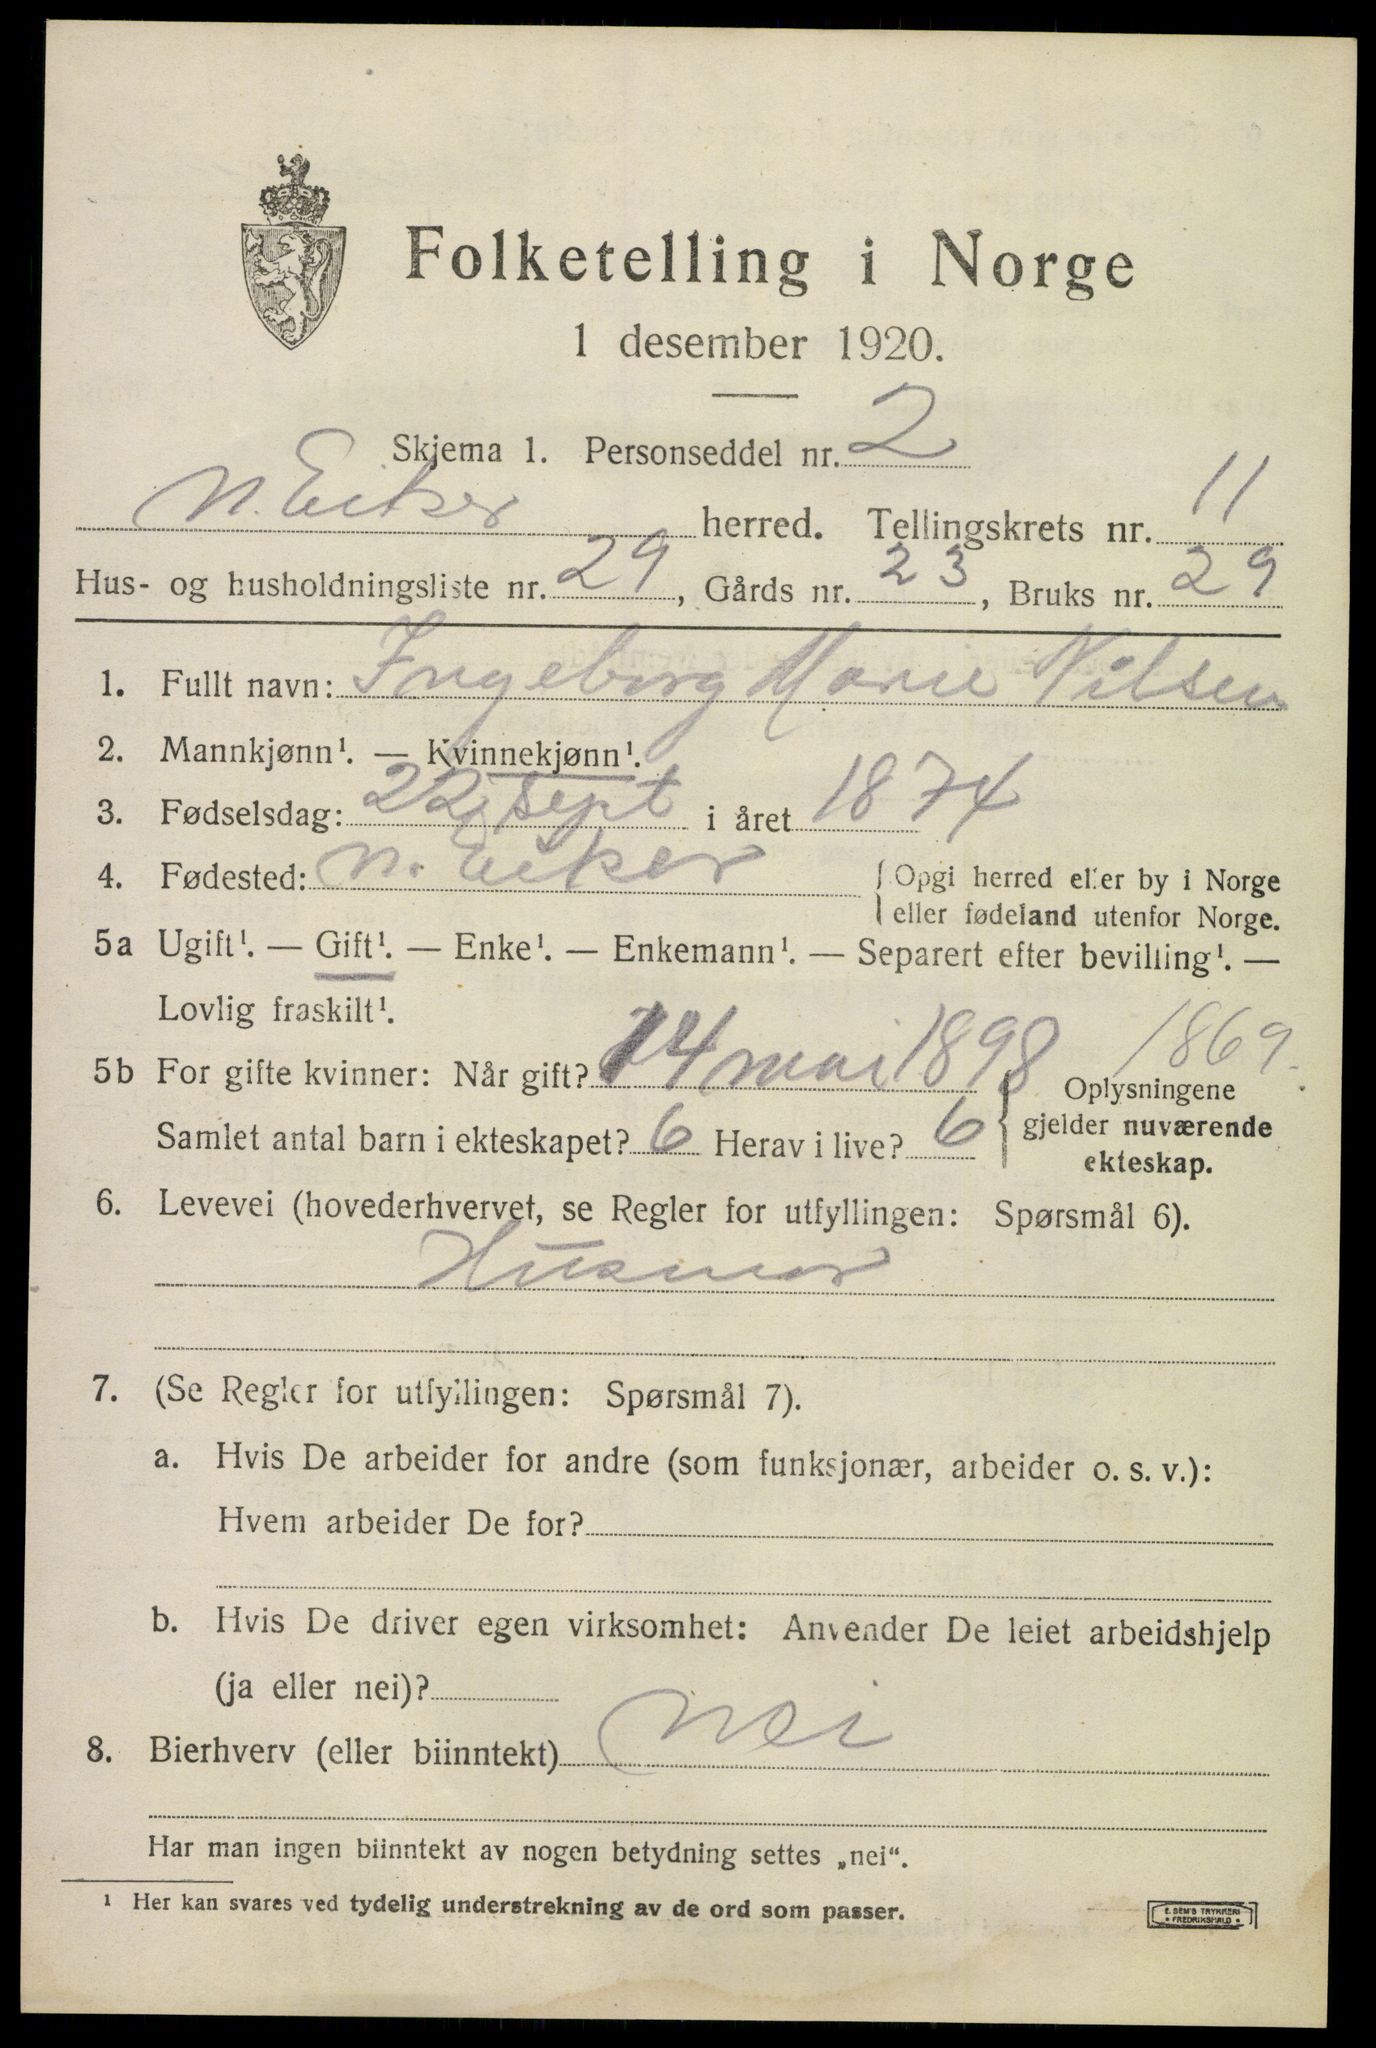 Folketelling i Norge
1 desember 1920.
Skjema 1. Personseddel nr. 2
N. Eiker herred. Tellingskrets nr. 11
Hus- og husholdningsliste nr. 29, Gårds nr. 23, Bruks nr. 29
1. Fullt navn: Ingeborg Marie Nilsen
2. Mannkjønn¹. — Kvinnekjønn¹.
3. Fødselsdag: 22 sept i året 1874
4. Fødested: N. Eiker { Opgi herred eller by i Norge
eller fødeland utenfor Norge.
5a Ugift¹. — Gift¹. — Enke¹. — Enkemann¹. — Separert efter bevilling¹. —
Lovlig fraskilt¹.
5b For gifte kvinner: Når gift? 14 mai 1898 1869.
Samlet antal barn i ekteskapet? 6 Herav i live? 6 { Oplysningene
gjelder nuværende
ekteskap.
6. Levevei (hovederhvervet, se Regler for utfyllingen: Spørsmål 6).
Husmor
7. (Se Regler for utfyllingen: Spørsmål 7).
a. Hvis De arbeider for andre (som funksjonær, arbeider o. s. v.):
Hvem arbeider De for?
b. Hvis De driver egen virksomhet: Anvender De leiet arbeidshjelp
(ja eller nei)?
8. Bierhverv (eller biinntekt) Nei
Har man ingen biinntekt av nogen betydning settes „nei“.
¹ Her kan svares ved tydelig understrekning av de ord som passer.
E. SEM'S TRYKKERI
• FREDRIKSHALD •